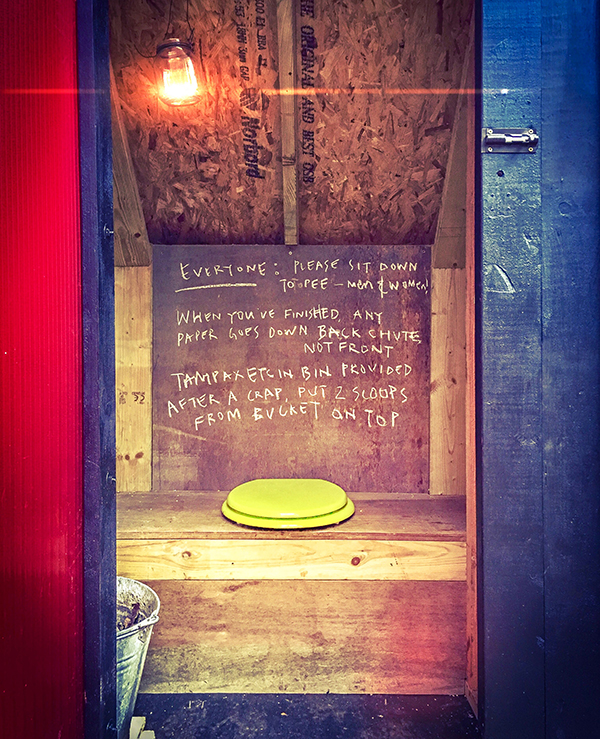 THE ORIGINAL AND BEST OSB
Norbord
EVERYONE: PLEASE SIT DOWN
TO PEE – MEN & WOMEN!
WHEN YOU'VE FINISHED, ANY
PAPER GOES DOWN BACK CHUTE
NOT FRONT
TAMPAX ETC IN BIN PROVIDED
AFTER A CRAP, PUT 2 SCOOPS
FROM BUCKET ON TOP